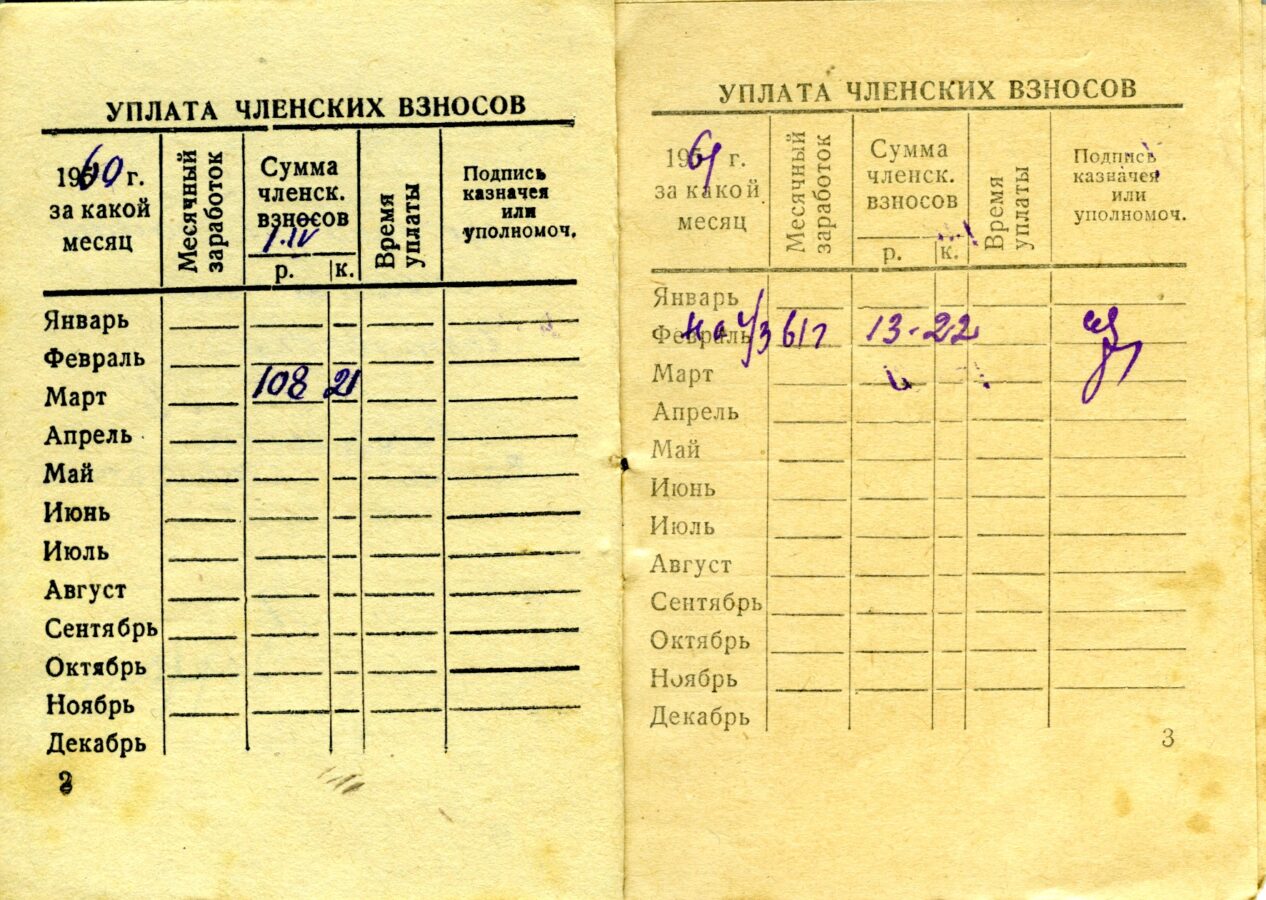 УПЛАТА ЧЛЕНСКИХ ВЗНОСОВ
1960 г.
за какой
месяц
Месячный
заработок
Сумма
членск.
взносов
1.IV
р. к.
Время
уплаты
Подпись
казначея
или
уполномоч.
Январь
Февраль
Март 108 21
Апрель
Май
Июнь
Июль
Август
Сентябрь
Октябрь
Ноябрь
Декабрь
2
УПЛАТА ЧЛЕНСКИХ ВЗНОСОВ
1961 г.
за какой
месяц
Месячный
заработок
Сумма
членск.
взносов
р. к.
Время
уплаты
Подпись
казначея
или
уполномоч.
Январь
Февраль на 1/3 61г 13-22
Март
Апрель
Май
Июнь
Июль
Август
Сентябрь
Октябрь
Ноябрь
Декабрь
3